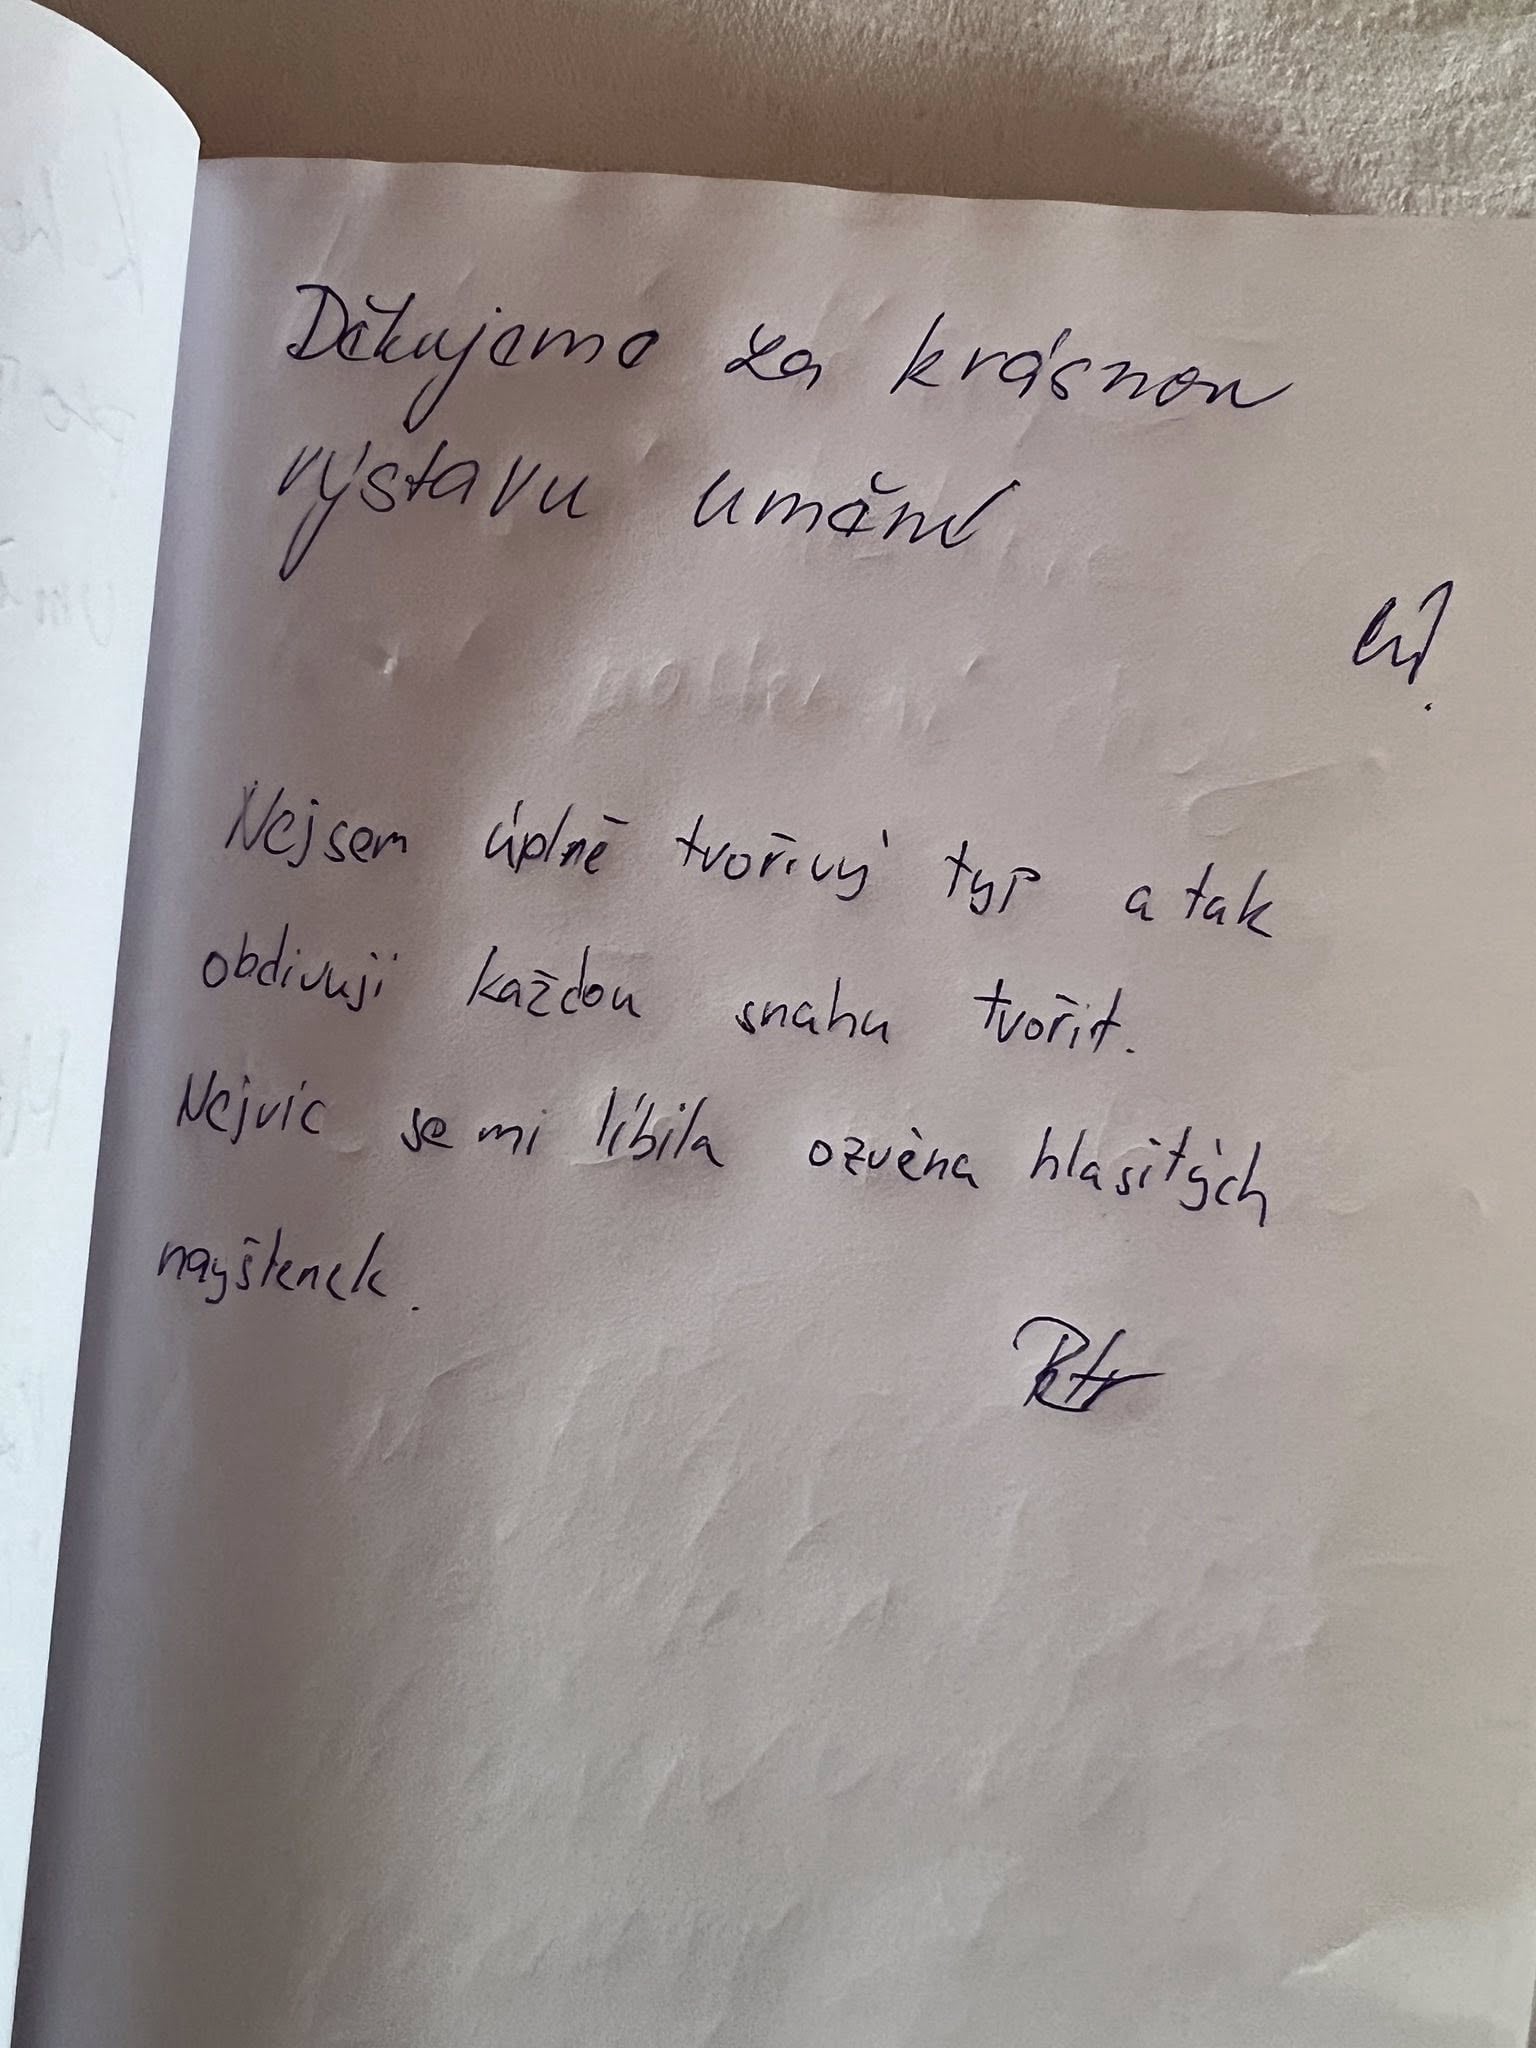 Děkujeme za krásnou
výstavu umění
Nejsem úplně tvořivý typ a tak
obdivuji každou snahu tvořit.
Nejvíc se mi líbila ozvěna hlasitých
nayštenek.
Petr